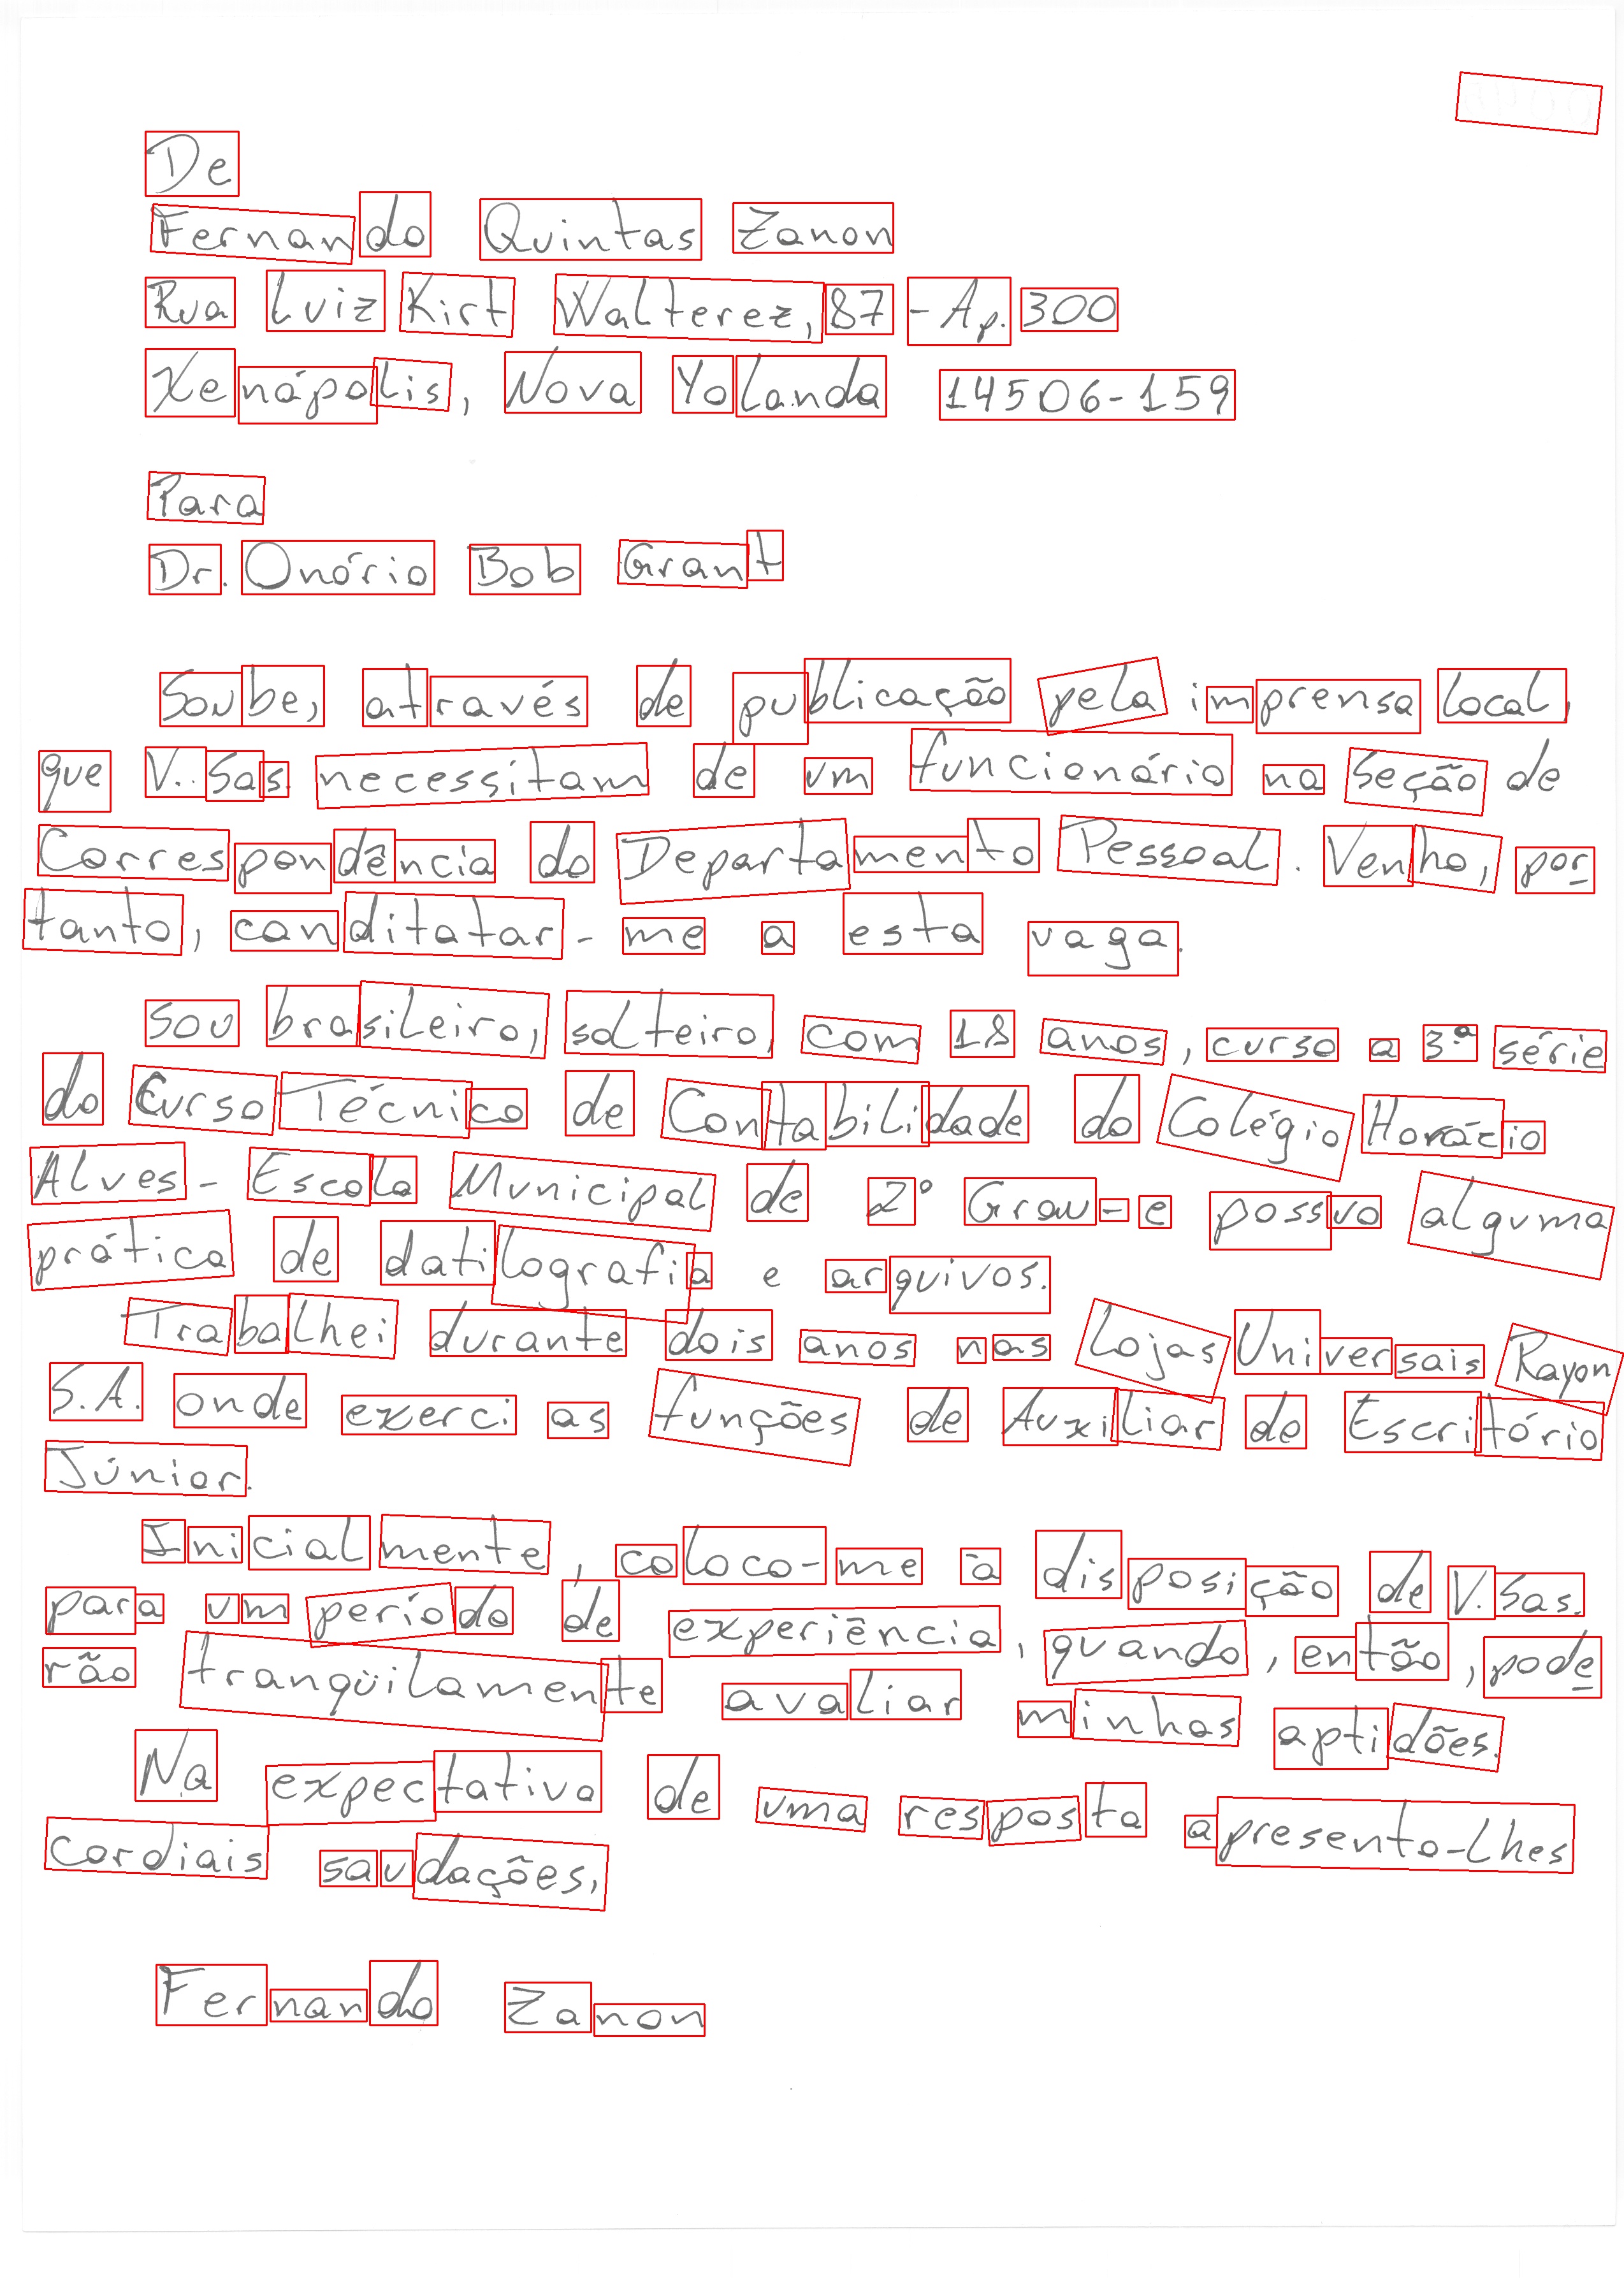 De
Fernando Quintas Zanon
Rua Luiz Kirt Walterez, 87 - Ap. 300
Xenápolis, Nova Yolanda 14506-159
Para
Dr. Onório Bob Grant
Soube, através de publicação pela imprensa local,
que V. Sas necessitam de um funcionário na seção de
Correspondência do Departamento Pessoal. Venho, por
tanto, canditatar-me a esta vaga.
Sou brasileiro, solteiro, com 18 anos, curso a 3ª série
do Curso Técnico de Contabilidade do Colégio Horácio
Alves - Escola Municipal de 2º Grau - e possuo alguma
prática de datilografia e arquivos.
Trabalhei durante dois anos nas Lojas Universais Rayon
S.A. onde exerci as funções de Auxiliar de Escritório
Júnior.
Inicialmente, coloco-me à disposição de V. Sas.
para um período de experiência, quando, então, pode
rão tranqüilamente avaliar minhas aptidões.
Na expectativa de uma resposta apresento-lhes
cordiais saudações,
Fernando Zanon